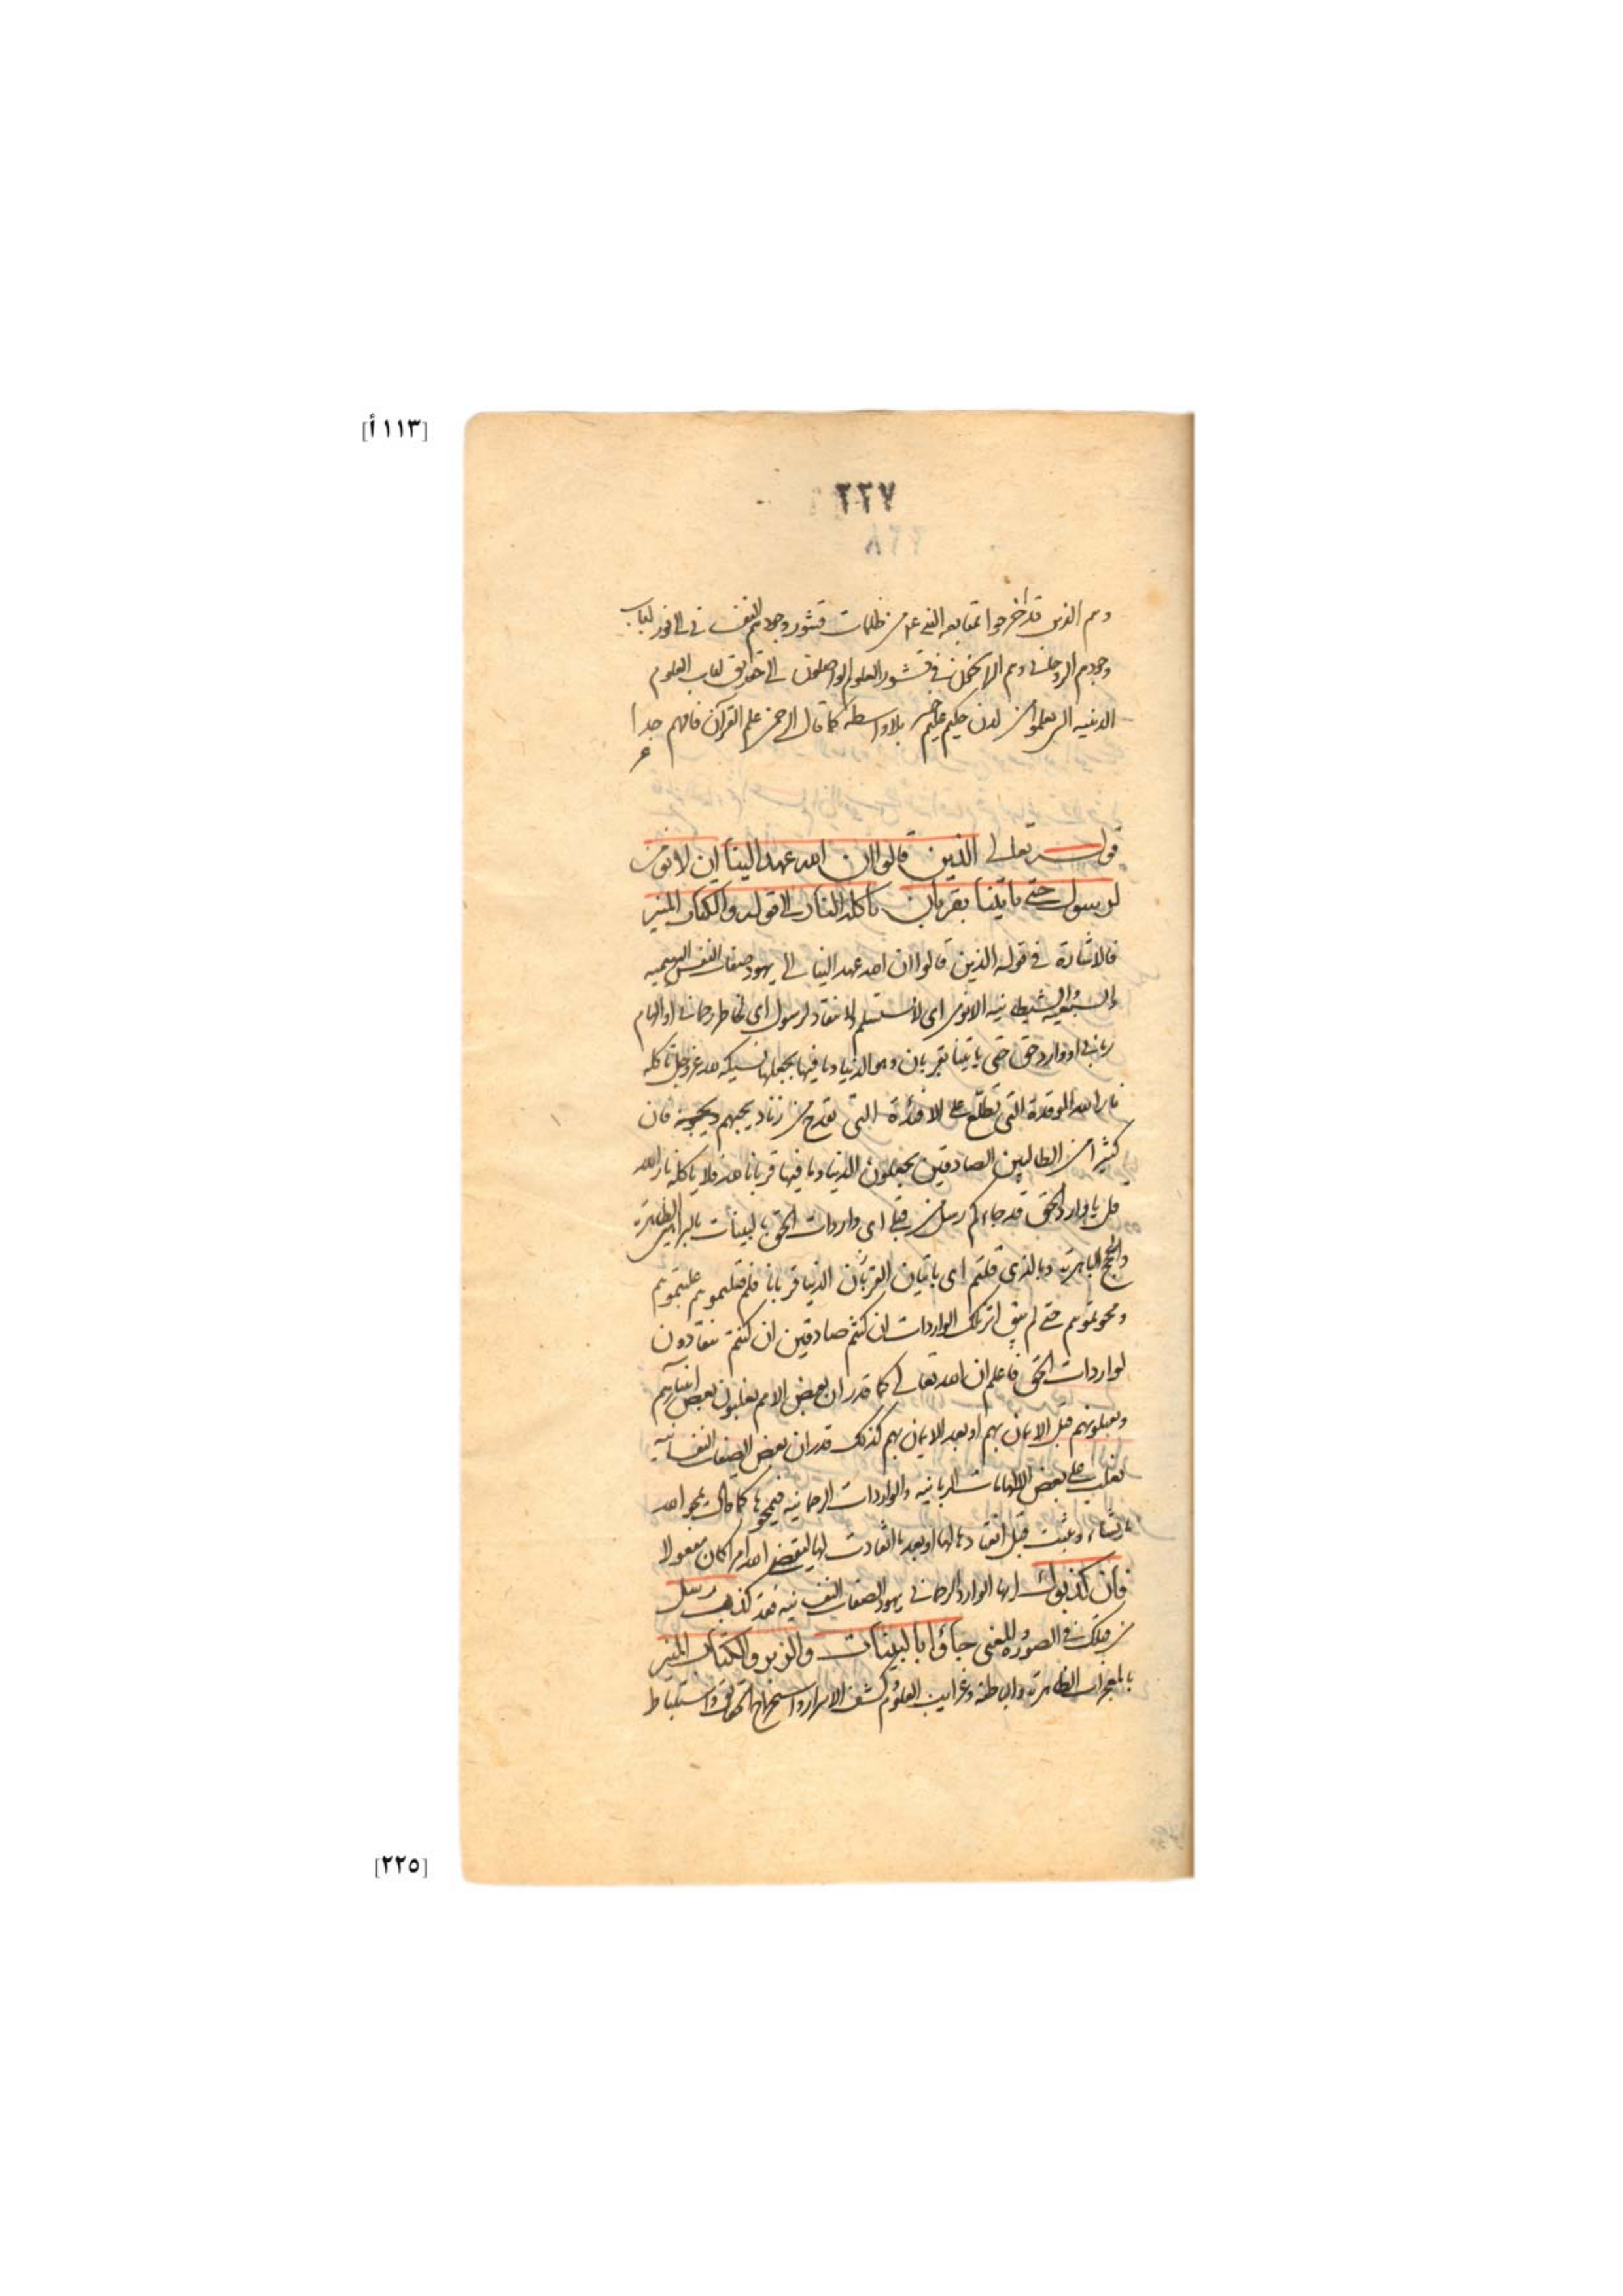 [١١٣أ]
٢٢٧
وهم الذين قد اخرجوا بمتابعة النبي عم من ظلمات قشور وجودهم النفسـاني الى نور لباب
وجودهم الروحاني وهم الراسخون في قشور العلوم الواصلون الى حقايق لباب العلوم
اللدنيه الذين يعلمون من لدن حكيم عليم خبير بلا واسطة كما قال الرحمن علم القرآن فافهم جدا
قوله تعالى الذين قالوا ان الله عهد الينا ان لا نؤمن
لرسول حتى ياتينا بقربان تاكله النار الى قوله والكتاب المنير
فالاشارة في قوله الذين قالوا ان الله عهد الينا الى يهود صفات النفس البهيميه
والسبعيه والشيطانيه ان لا نؤمن اى لا نستسلم ولا ننقاد لرسول اى لخاطر رحماني او الهام
رباني او وارد حق حتى ياتينا بقربان وهى الدنيا وما فيها يجعلها نسيكة لله عز وجل تاكله
نار الله الموقدة التى تطلع على الافئدة التى تقدح من زناد يحبهم ويحبونه فان
كثيرا من الطالبين الصادقين يجعلون الدنيا وما فيها قربانا لله فلا ياكله نار الله
قل يا وارد الحق قد جاءكم رسل من قبلى اى واردات الحق بالبينات بالبراهين الظاهرة
والحجج الباهرة وبالذى قلتم اى باتيان القربان الدنيا قربانا فلم قتلتموهم غلبتموهم
ومحوتموهم حتى لم يبق اثر تلك الواردات ان كنتم صادقين ان كنتم تنقادون
لواردات الحق فاعلم ان الله تعالى كما قدر ان بعض الامم يغلبون بعض انبيائهم
ويقتلونهم قبل الايمان بهم او بعد الايمان بهم كذلك قدر ان بعض الصفات النفسانيه
تغلب على بعض الالهامات الربانيه والواردات الرحمانيه فيمحوها كما قال يمحو الله
ما يشاء ويثبت قبل انقيادها لها او بعد ما انقادت لها ليقضى الله امرا كان مفعولا
فان كذبوك ايها الوارد الرحماني يهود الصفات النفسانيه فقد كذب رسل
من قبلك في الصورة والمعنى جاؤا بالبينات والزبر والكتاب المنير
بالمعجزات الظاهرة والباطنة وغرايب العلوم كشف الاسرار واستخراج الحقايق واستنباط
[٢٢٥]